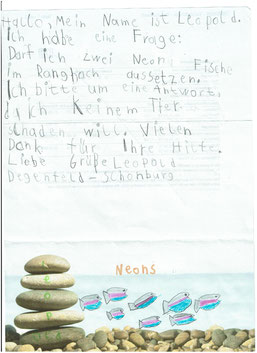 Hallo, Mein Name ist Leopold.
Ich habe eine Frage:
Darf ich zwei Neons Fische
im Rangbach aussetzen.
Ich bitte um eine Antwort,
da ich Keinem Tier
schaden will. Vielen
Dank für Ihre Hilfe.
Liebe Grüße Leopold
Degenfeld-Schönburg
Neons